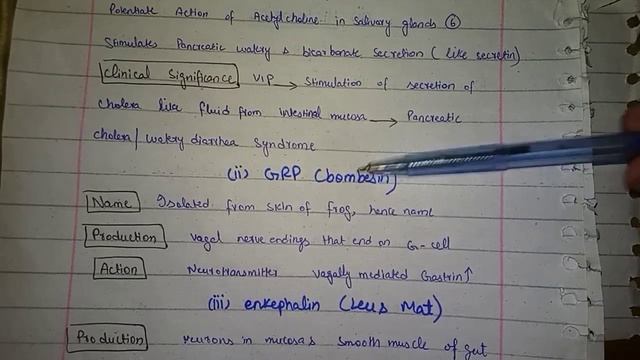 Potentiate Action of Acetylcholine in salivary glands ⑥
Stimulates Pancreatic watery & bicarbonate secretion (like secretin)
Clinical Significance VIP → Stimulation of secretion of
cholera like fluid from intestinal mucosa → Pancreatic
cholera/watery diarrhea syndrome
(ii) GRP (bombesin)
Name Isolated from skin of frog, hence name
Production vagal nerve endings that end on G-cell
Action Neurotransmitter vagally mediated Gastrin↑
(iii) enkephalin (Leu & Mat)
Production neurons in mucosa & smooth muscle of gut